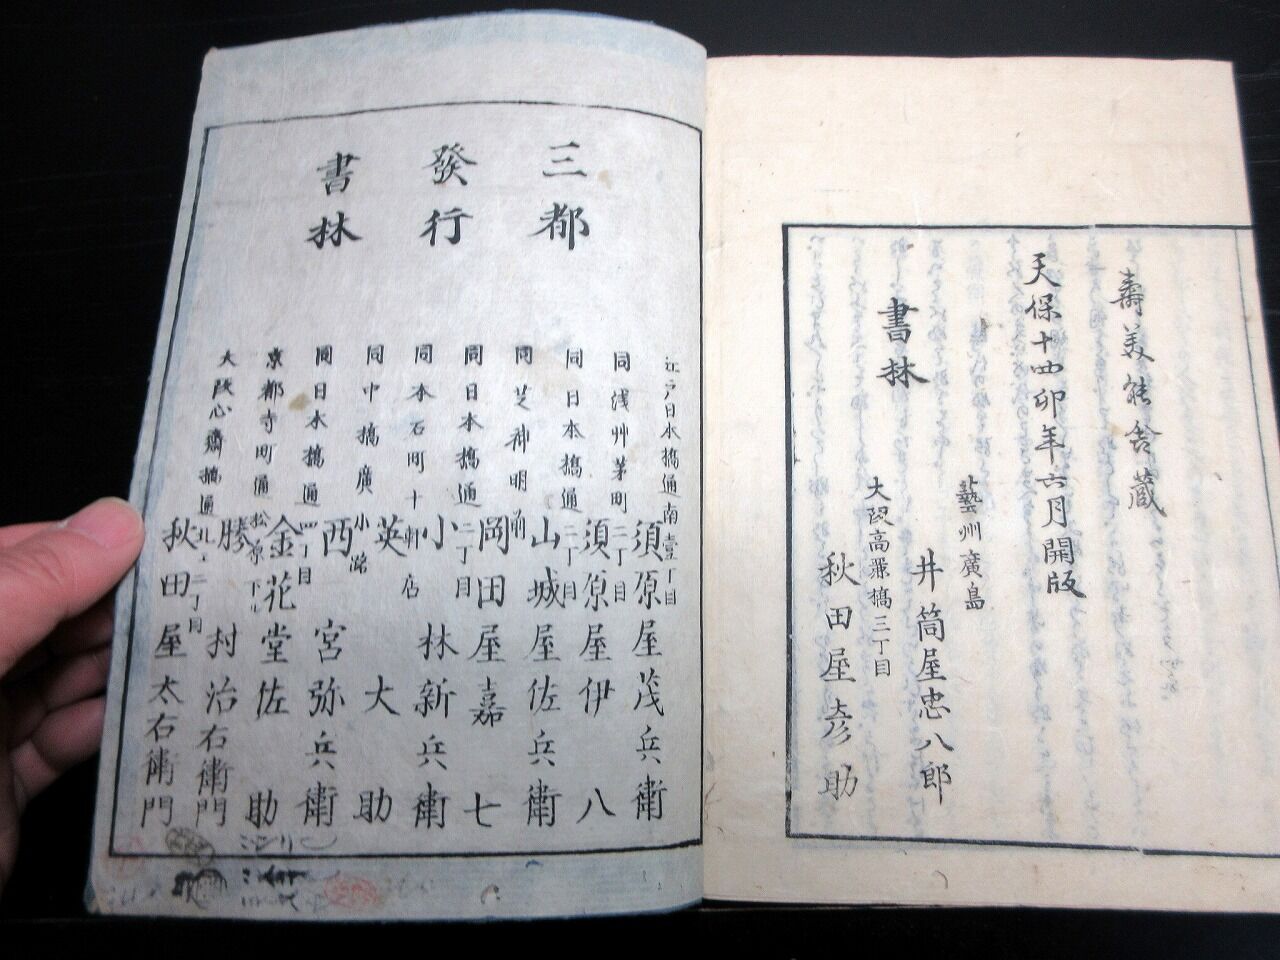 壽美能舎蔵
天保十四卯年六月開版
書林
藝州廣島
井筒屋忠八郎
大阪高麗橋三丁目
秋田屋彦助
三都
發行
書林
江戸日本橋通南壹丁目
須原屋茂兵衛
同浅艸茅町二丁目
須原屋伊八
同日本橋通二丁目
山城屋佐兵衛
同芝神明前
岡田屋嘉七
同日本橋通二丁目
小林新兵衛
同本石町十軒店
英大助
同中橋廣小路
西宮弥兵衛
同日本橋通四丁目
金花堂佐助
京都寺町通松原下ル
勝村治右衛門
大阪心齋橋通北二丁目
秋田屋太右衛門